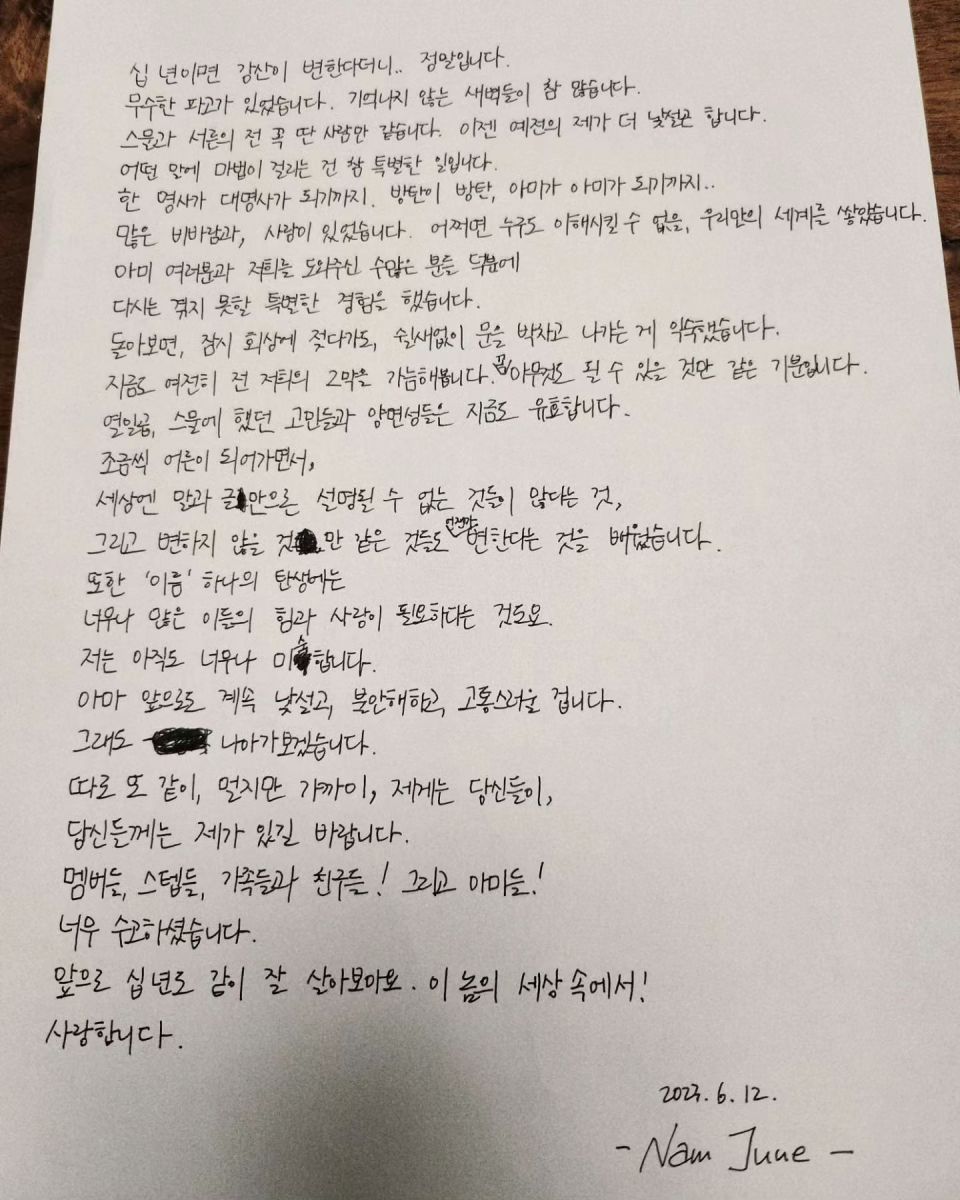 십 년이면 강산이 변한다더니.. 정말입니다.
무수한 파고가 있었습니다. 기억나지 않는 새벽들이 참 많습니다.
스물과 서른의 전 꼭 딴 사람만 같습니다. 이젠 예전의 제가 더 낯설곤 합니다.
어떤 말에 마법이 걸리는 건 참 특별한 일입니다.
한 명사가 대명사가 되기까지. 방탄이 방탄, 아미가 아미가 되기까지..
많은 비바람과, 사랑이 있었습니다. 어쩌면 누구도 이해시킬 수 없을, 우리만의 세계를 쌓았습니다.
아미 여러분과 저희를 도와주신 수많은 분들 덕분에
다시는 겪지 못할 특별한 경험을 했습니다.
돌아보면, 잠시 회상에 젖다가도, 쉴새없이 문을 박차고 나가는 게 익숙했습니다.
지금도 여전히 전 저희의 2막을 가늠해봅니다. 꼭 아무것도 될 수 있을 것만 같은 기분입니다.
열일곱, 스물에 했던 고민들과 양면성들은 지금도 유효합니다.
조금씩 어른이 되어가면서,
세상엔 말과 글만으론 설명될 수 없는 것들이 많다는 것,
그리고 변하지 않을 것만 같은 것들도 언젠간 변한다는 것을 배웠습니다.
또한 '이름' 하나의 탄생에는
너무나 많은 이들의 힘과 사랑이 필요하다는 것도요.
저는 아직도 너무나 미숙합니다.
아마 앞으로도 계속 낯설고, 불안해하고, 고통스러울 겁니다.
그래도 나아가보겠습니다.
따로 또 같이, 멀지만 가까이, 제게는 당신들이,
당신들께는 제가 있길 바랍니다.
멤버들, 스텝들, 가족들과 친구들! 그리고 아미들!
너무 수고하셨습니다.
앞으로 십 년도 같이 잘 살아보아요. 이 놈의 세상 속에서!
사랑합니다.
2023. 6. 12.
- Nam June -